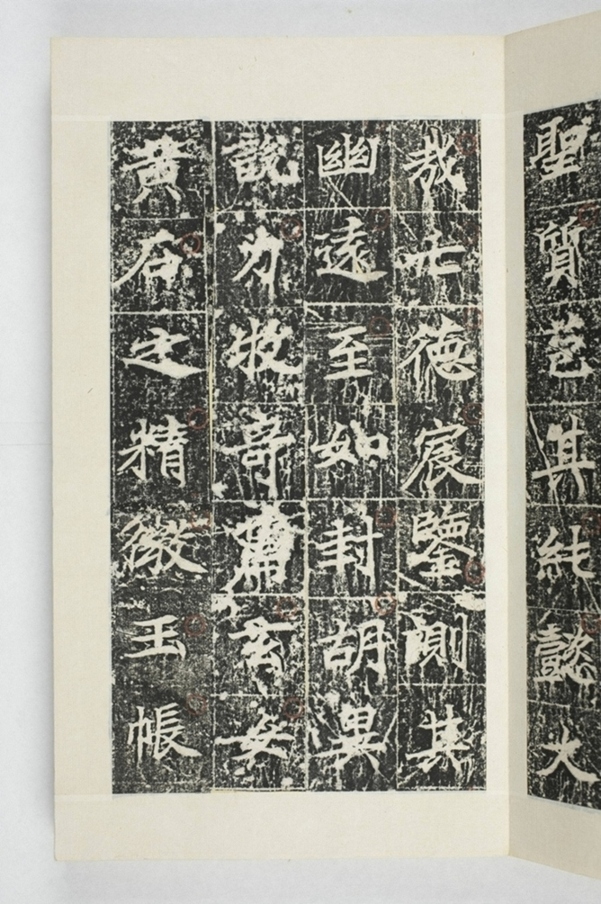 聖質苞其純懿大
哉七德宸鑒測其
幽遠至如封胡異
說力牧奇篇玄女
黃石之精微玉帳